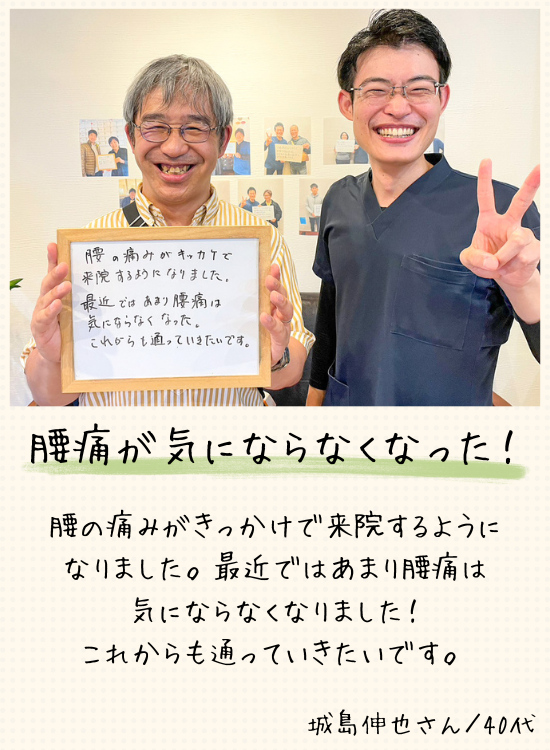 腰の痛みがキッカケで
来院するようになりました。
最近ではあまり腰痛は
気にならなくなった。
これからも通っていきたいです。
腰痛が気にならなくなった！
腰の痛みがきっかけで来院するように
なりました。最近ではあまり腰痛は
気にならなくなりました！
これからも通っていきたいです。
城島伸也さん/40代